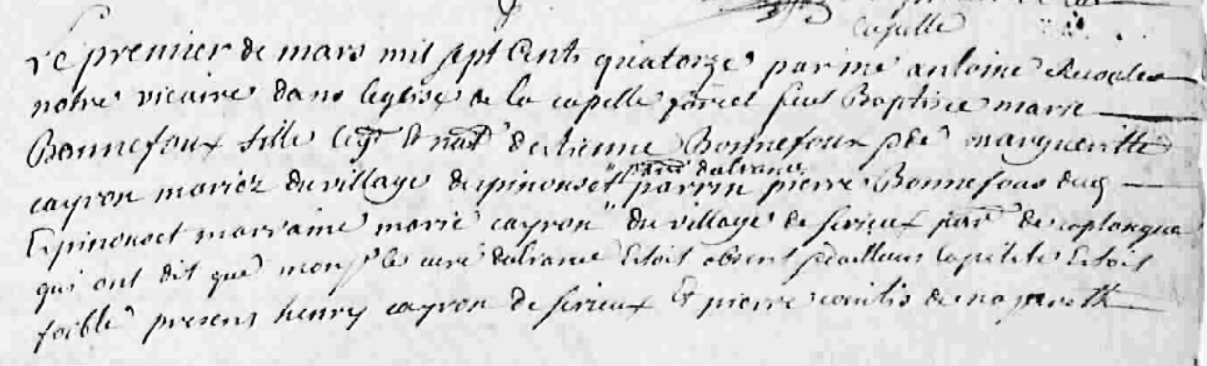 capelle
Le premier de mars mil sept Cents quatorze par me antoine
notre vicaire dans leglise de la capelle farcel feut Baptisée marie
Bonnefoux fille legme et natle destienne Bonnefoux et de margueritte
cayron mariez du village despinouset parrin pierre Bonnefous dudt
parr dalrance
Espinouset marraine marie cayron du village de serieux parr de caplongue
qui ont dit que monsr le curé dalrance Estoit absent dailleurs la petite Estoit
foible presens henry cayron de serieux Et pierre de